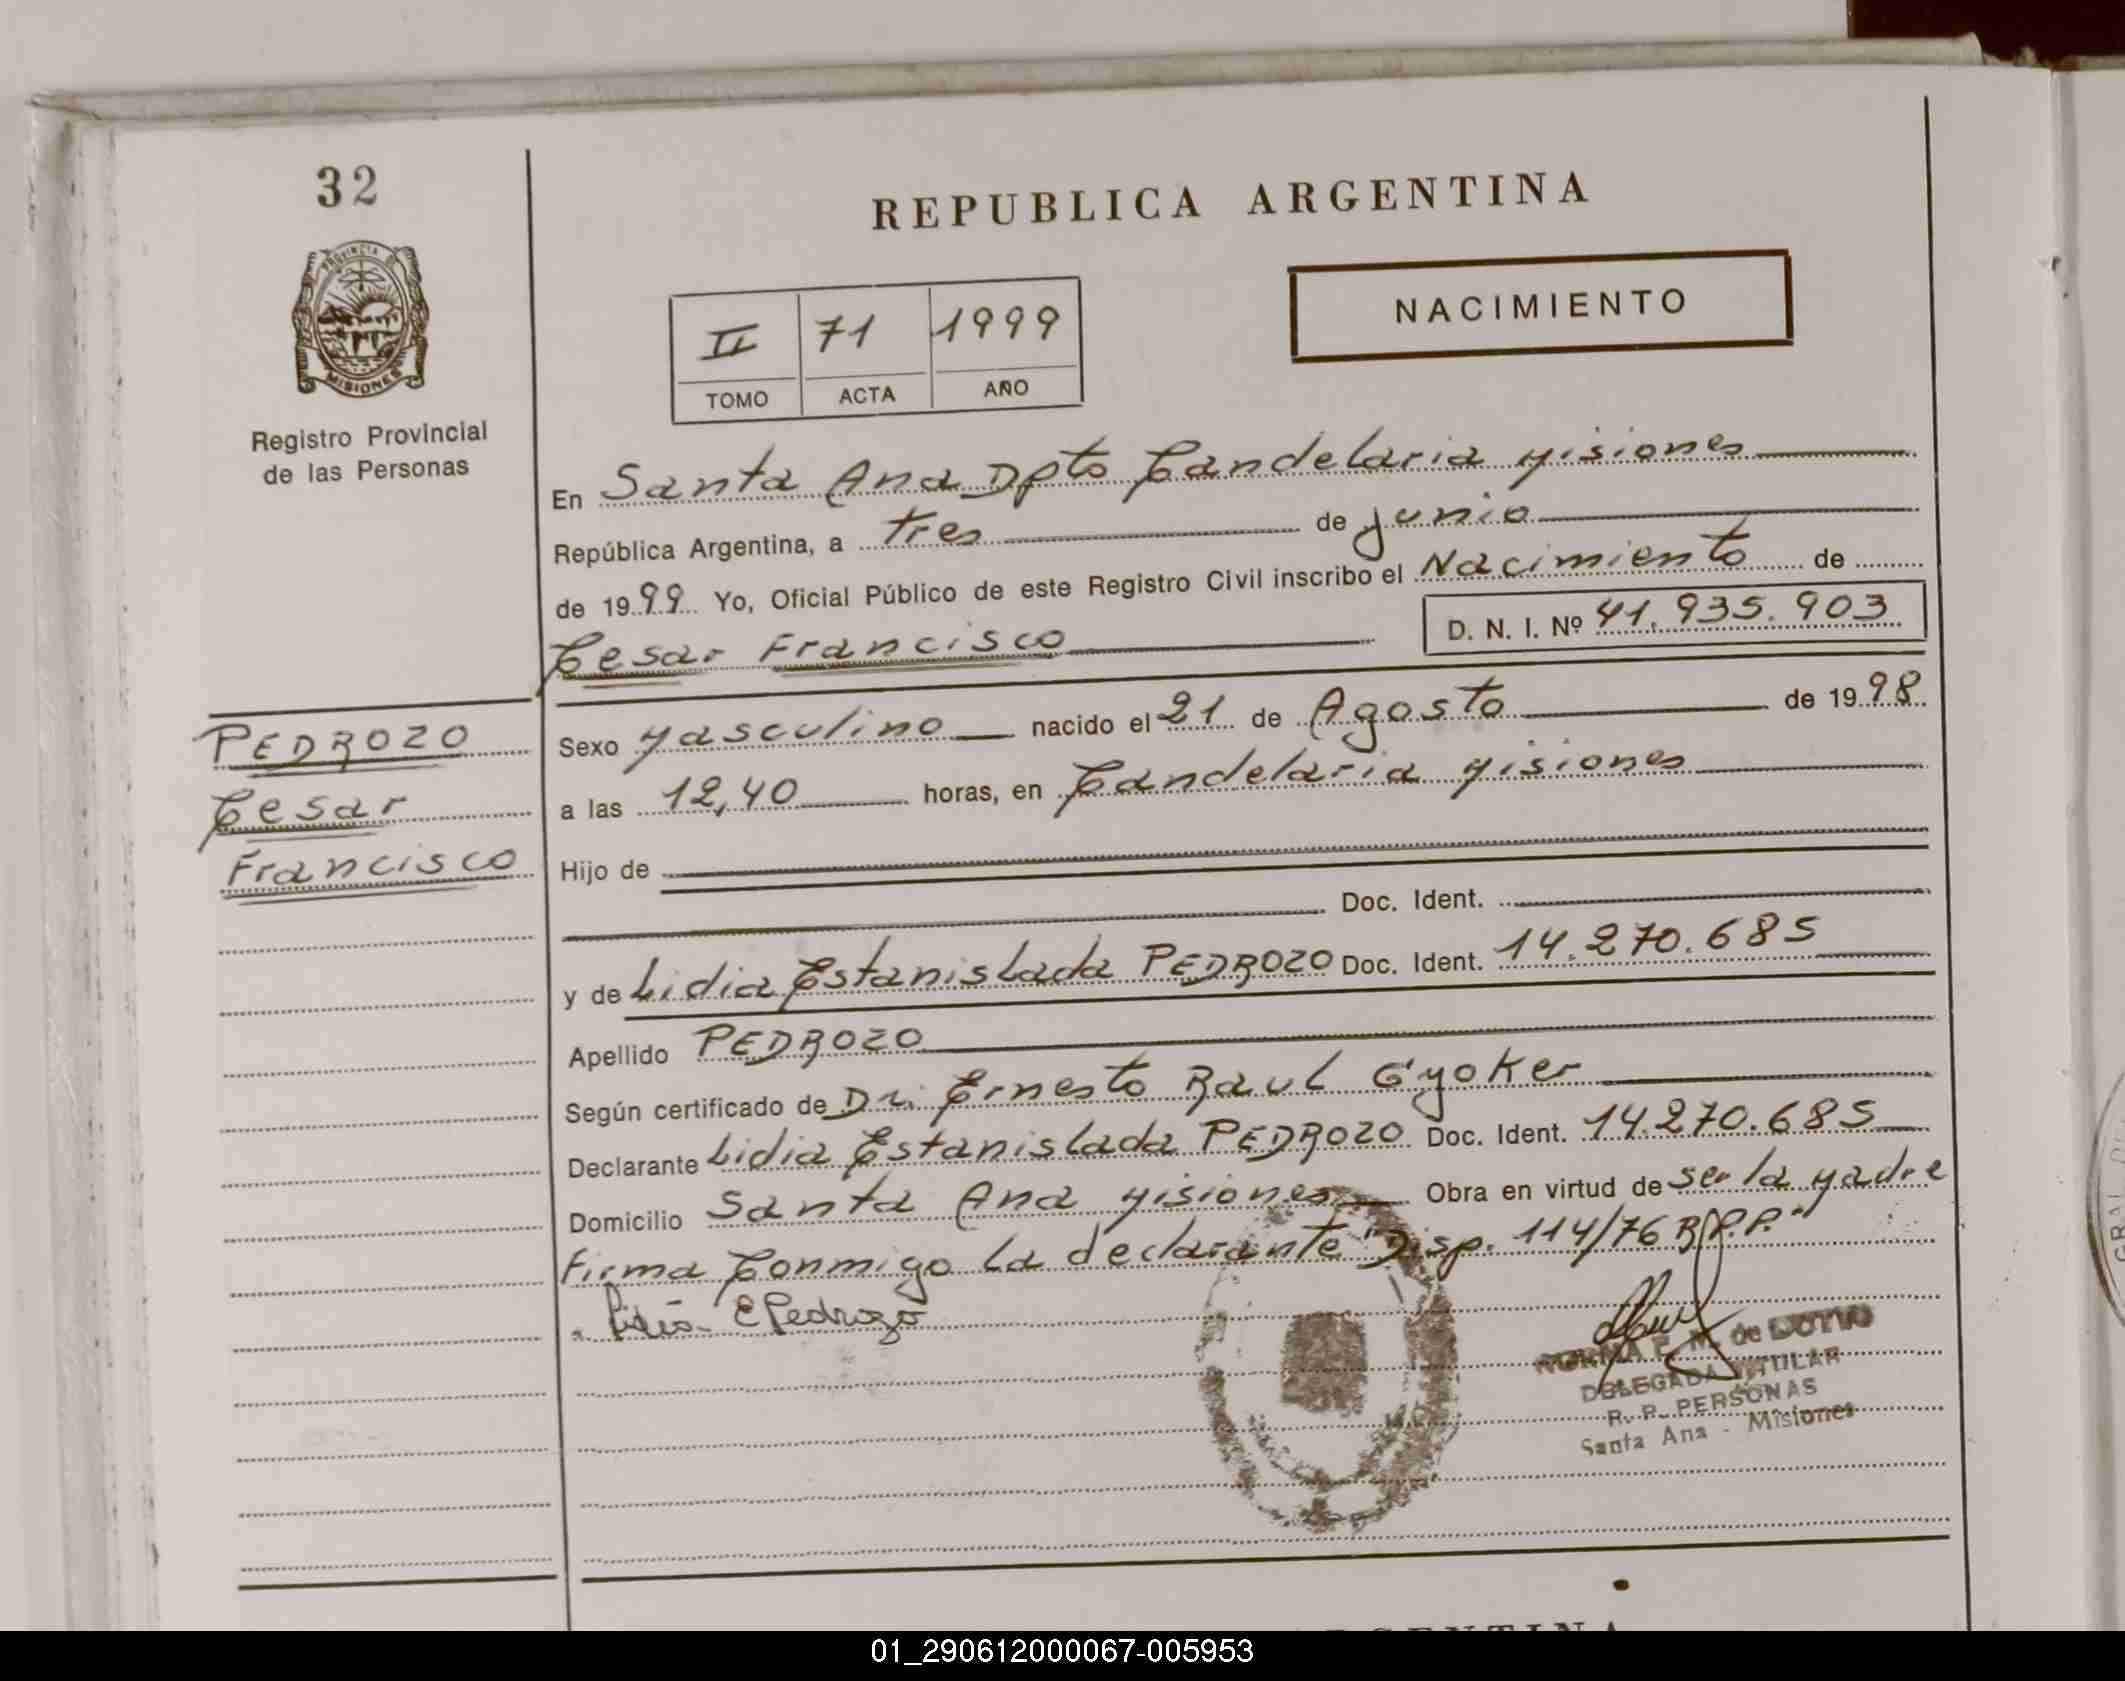 32
PROVINCIA DE
MISIONES
Registro Provincial
de las Personas
REPUBLICA ARGENTINA
II 71 1999
TOMO ACTA AÑO
NACIMIENTO
En Santa Ana Dpto Candelaria Misiones
República Argentina, a tres de junio
de 1999 Yo, Oficial Público de este Registro Civil inscribo el Nacimiento de
Cesar Francisco D. N. I. Nº 41.935.903
PEDROZO
Cesar
Francisco
Sexo Masculino nacido el 21 de Agosto de 1998
a las 12,40 horas, en Candelaria Misiones
Hijo de
Doc. Ident.
y de Lidia Estanislada PEDROZO Doc. Ident. 14.270.685
Apellido PEDROZO
Según certificado de Dr. Ernesto Raul Gyoker
Declarante Lidia Estanislada PEDROZO Doc. Ident. 14.270.685
Domicilio Santa Ana Misiones Obra en virtud de ser la Madre
Firma Conmigo la declarante "Disp. 114/76 R.P.P."
Lidia E Pedrozo
NORMA E. M. de
DELEGADA TITULAR
R. P. PERSONAS
Santa Ana - Misiones
01_290612000067-005953